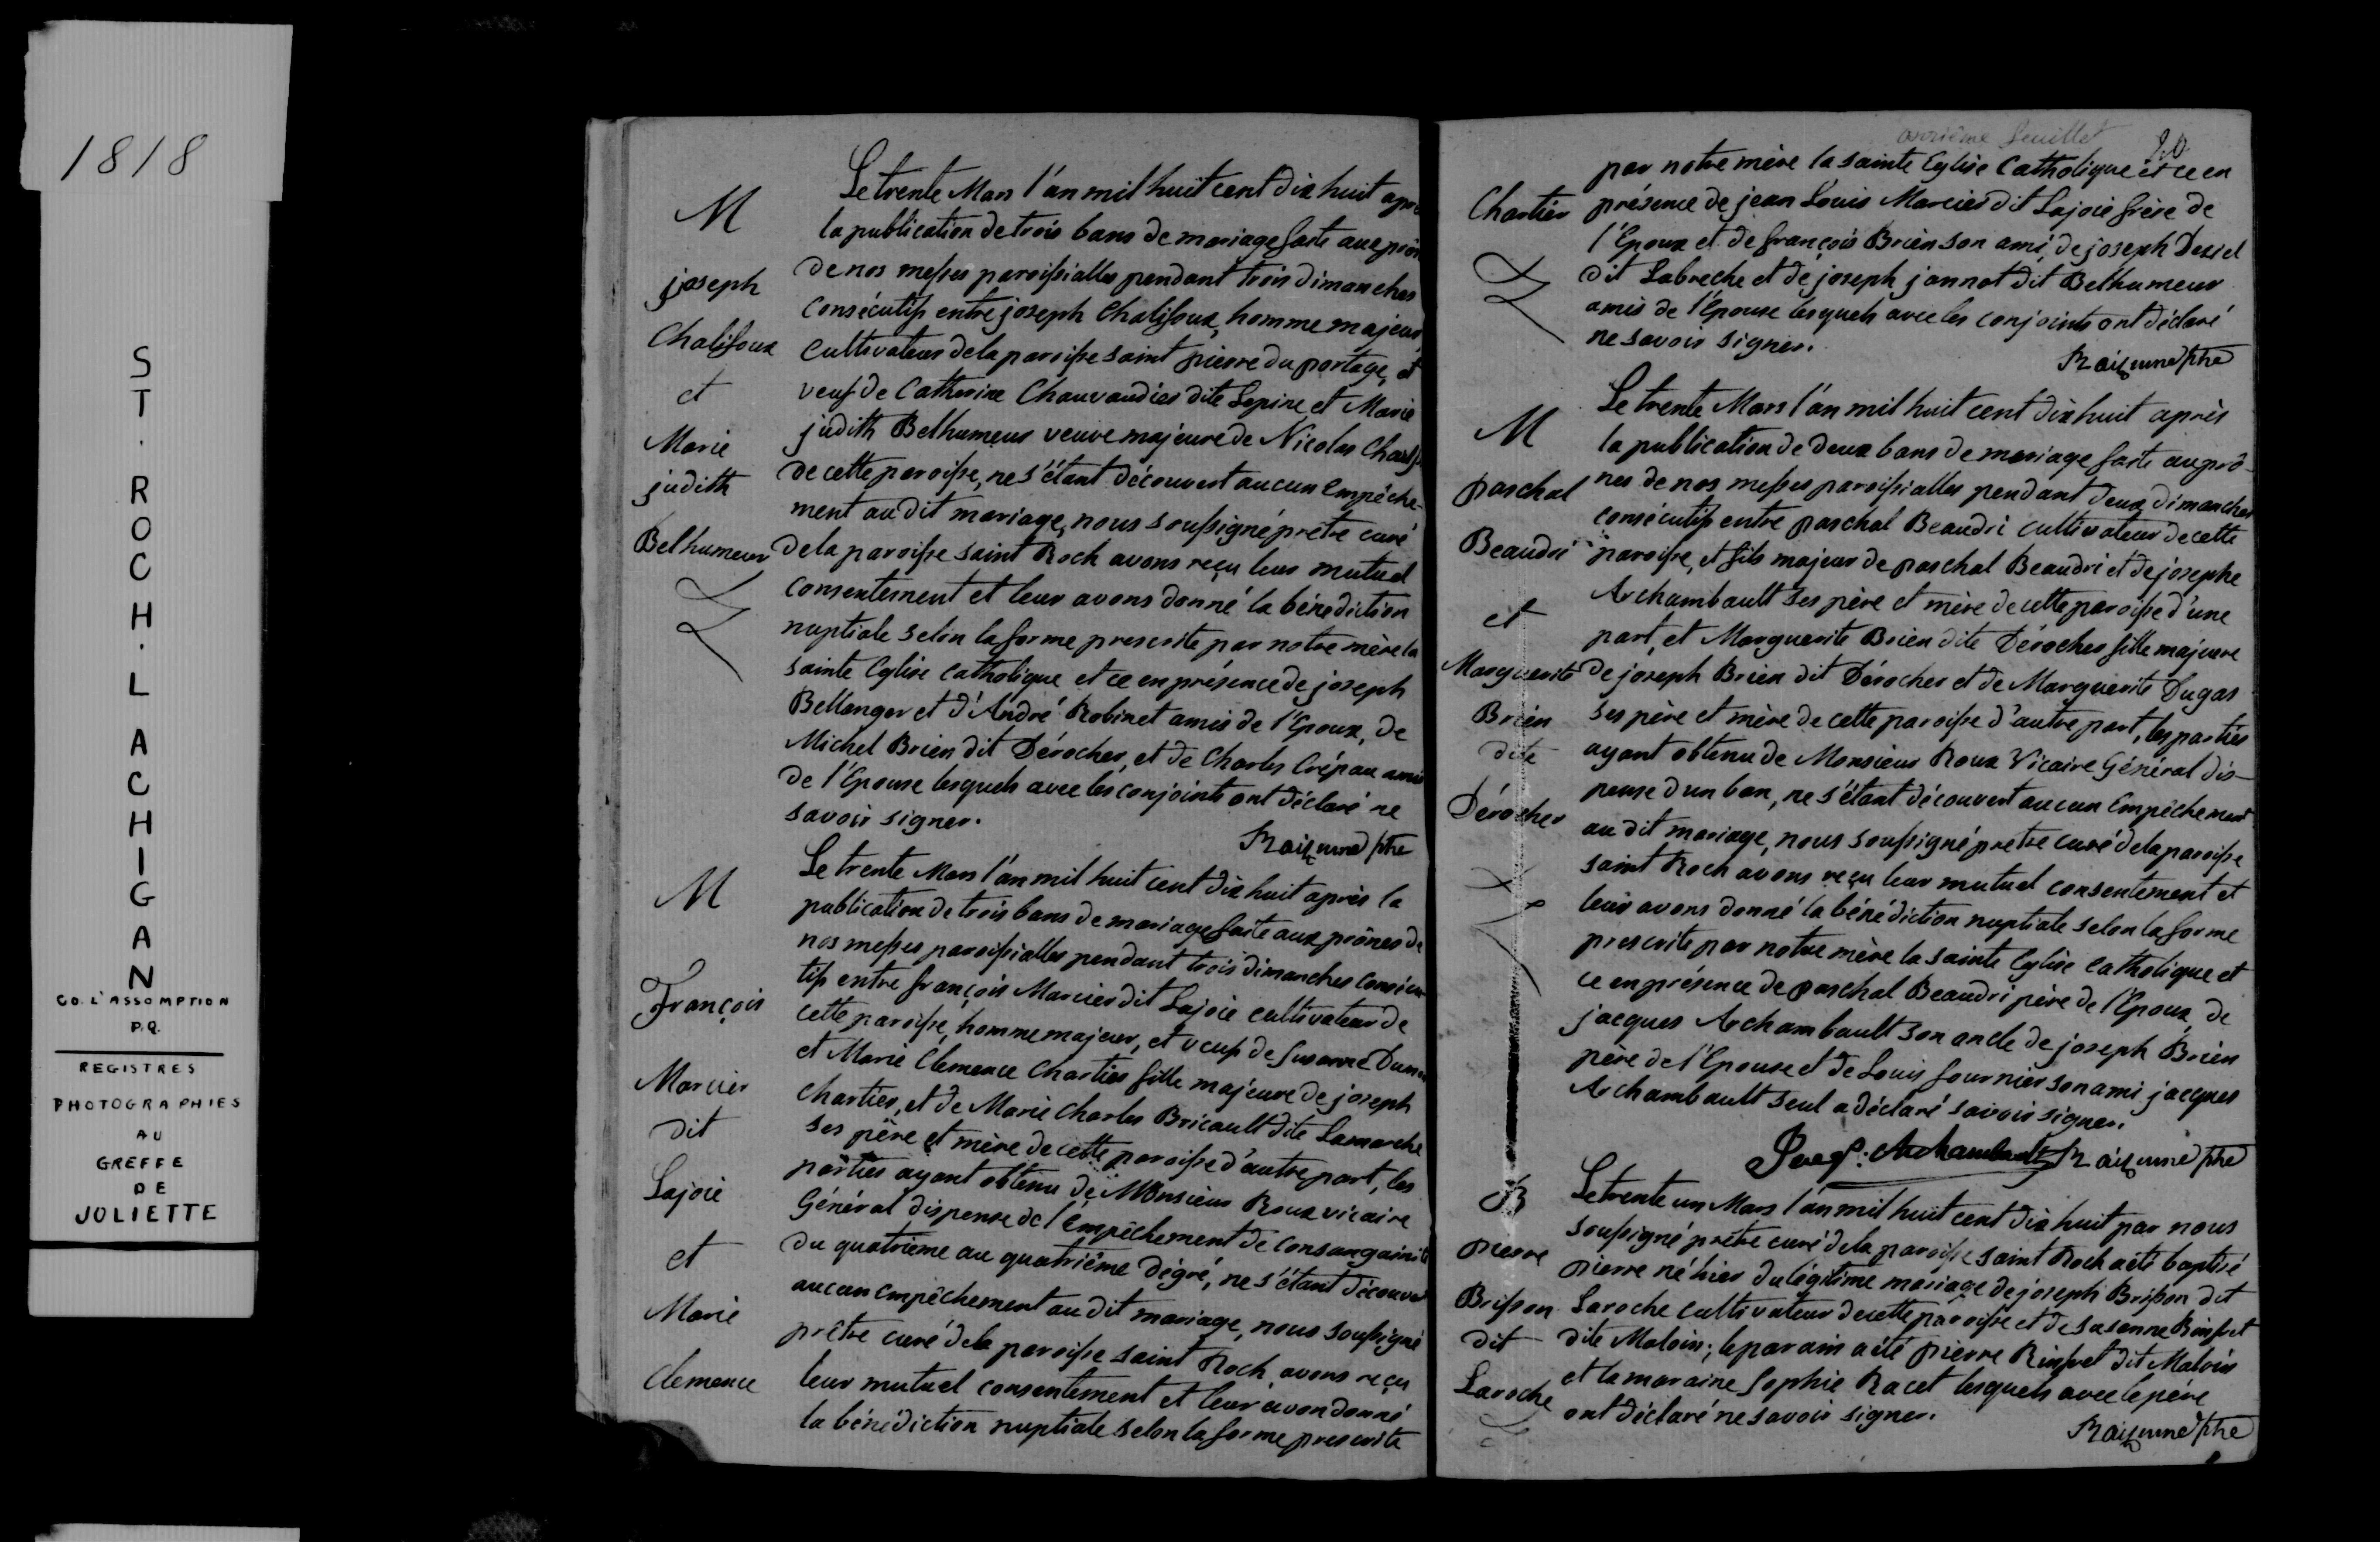 1818
ST. ROCH. LACHIGAN
CO. L'ASSOMPTION
P.Q.
REGISTRES
PHOTOGRAPHIES
AU
GREFFE
DE
JOLIETTE
M
joseph
Chalifoux
et
Marie
judith
Belhumeur
Le trente Mars l'an mil huit cent dix huit
la publication de trois bans de mariage faite aux
de nos messes paroissialles pendant trois dimanches
consécutifs entre joseph Chalifoux, homme majeur,
cultivateur de la paroisse saint pierre du portage, et
veuf de Catherine Chauvaudier dite Lepine et Marie
judith Belhumeur veuve majeure de Nicolas
de cette paroisse, ne s'étant découvert aucun empêche-
ment au dit mariage, nous soussigné prêtre curé
de la paroisse saint Roch avons reçu leur mutuel
consentement et leur avons donné la bénediction
nuptiale selon la forme prescrite par notre mère la
sainte Eglise catholique et ce en présence de joseph
Bellanger et d'André Robinet amis de l'Epoux, de
Michel Brien dit Dérocher, et de Charles Crépau amis
de l'Epouse lesquels avec les conjoints ont déclaré ne
savoir signer.
Raizenne ptre
M
François
Marcier
dit
Lajoie
et
Marie
Clemence
Le trente Mars l'an mil huit cent dix huit après la
publication de trois bans de mariage faite aux prônes de
nos messes paroissialles pendant trois dimanches consécu
tifs entre françois Marcier dit Lajoie cultivateur de
cette paroisse, homme majeur, et veuf de Susanne
et Marie Clemence Chartier fille majeure de joseph
Chartier, et de Marie Charles Bricault dite Lamarche
ses père et mère de cette paroisse d'autre part, les
parties ayant obtenu de Monsieur Roux vicaire
Général dispense de l'empêchement de consanguinité
du quatrième au quatrième dégré, ne s'étant découvert
aucun empêchement au dit mariage, nous soussigné
prêtre curé de la paroisse saint Roch avons reçu
leur mutuel consentement et leur avon donné
la bénédiction nuptiale selon la forme prescrite
onzième feuillet
Chartier
par notre mère la sainte Eglise Catholique et ce en
présence de jean Louis Marcier dit Lajoie frère de
l'Epoux et de françois Brien son ami, de joseph Deziel
dit Labreche et de joseph jannot dit Belhumeur
amis de l'Epouse lesquels avec les conjoints ont déclaré
ne savoir signer.
Raizenne ptre
M
paschal
Beaudri
et
Marguerite
Brien
dite
Dérocher
Le trente Mars l'an mil huit cent dix huit après
la publication de deux bans de mariage faite au prô-
nes de nos messes paroissialles pendant deux dimanches
consécutifs entre paschal Beaudri cultivateur de cette
paroisse, et fils majeur de paschal Beaudri et de josephe
Archambault ses père et mère de cette paroisse d'une
part, et Marguerite Brien dite Dérocher fille majeure
de joseph Brien dit Dérocher et de Marguerite Dugas
ses père et mère de cette paroisse d'autre part, les parties
ayant obtenu de Monsieur Roux Vicaire Général dis-
pense d'un ban, ne s'étant découvert aucun Empêchement
au dit mariage, nous soussigné prêtre curé de la paroisse
saint Roch avons reçu leur mutuel consentement et
leur avons donné la bénédiction nuptiale selon la forme
prescrite par notre mère la sainte Eglise catholique et
ce en présence de paschal Beaudri père de l'Epoux, de
jacques Archambault son oncle de joseph Brien
père de l'Epouse et de Louis fournier son ami jacques
Archambault seul a déclaré savoir signer.
Jacq: Archambault Raizenne ptre
B
pierre
Brisson
dit
Laroche
Le trente un Mars l'an mil huit cent dix huit par nous
soussigné prêtre curé de la paroisse saint Roch a été baptisé
pierre né hier du légitime mariage de joseph Brisson dit
Laroche cultivateur de cette paroisse et de susanne Rinfret
dite Maloin; le parain a été pierre Rinfret dit Maloin
et la maraine Sophie Racet lesquels avec le père
ont déclaré ne savoir signer.
Raizenne ptre